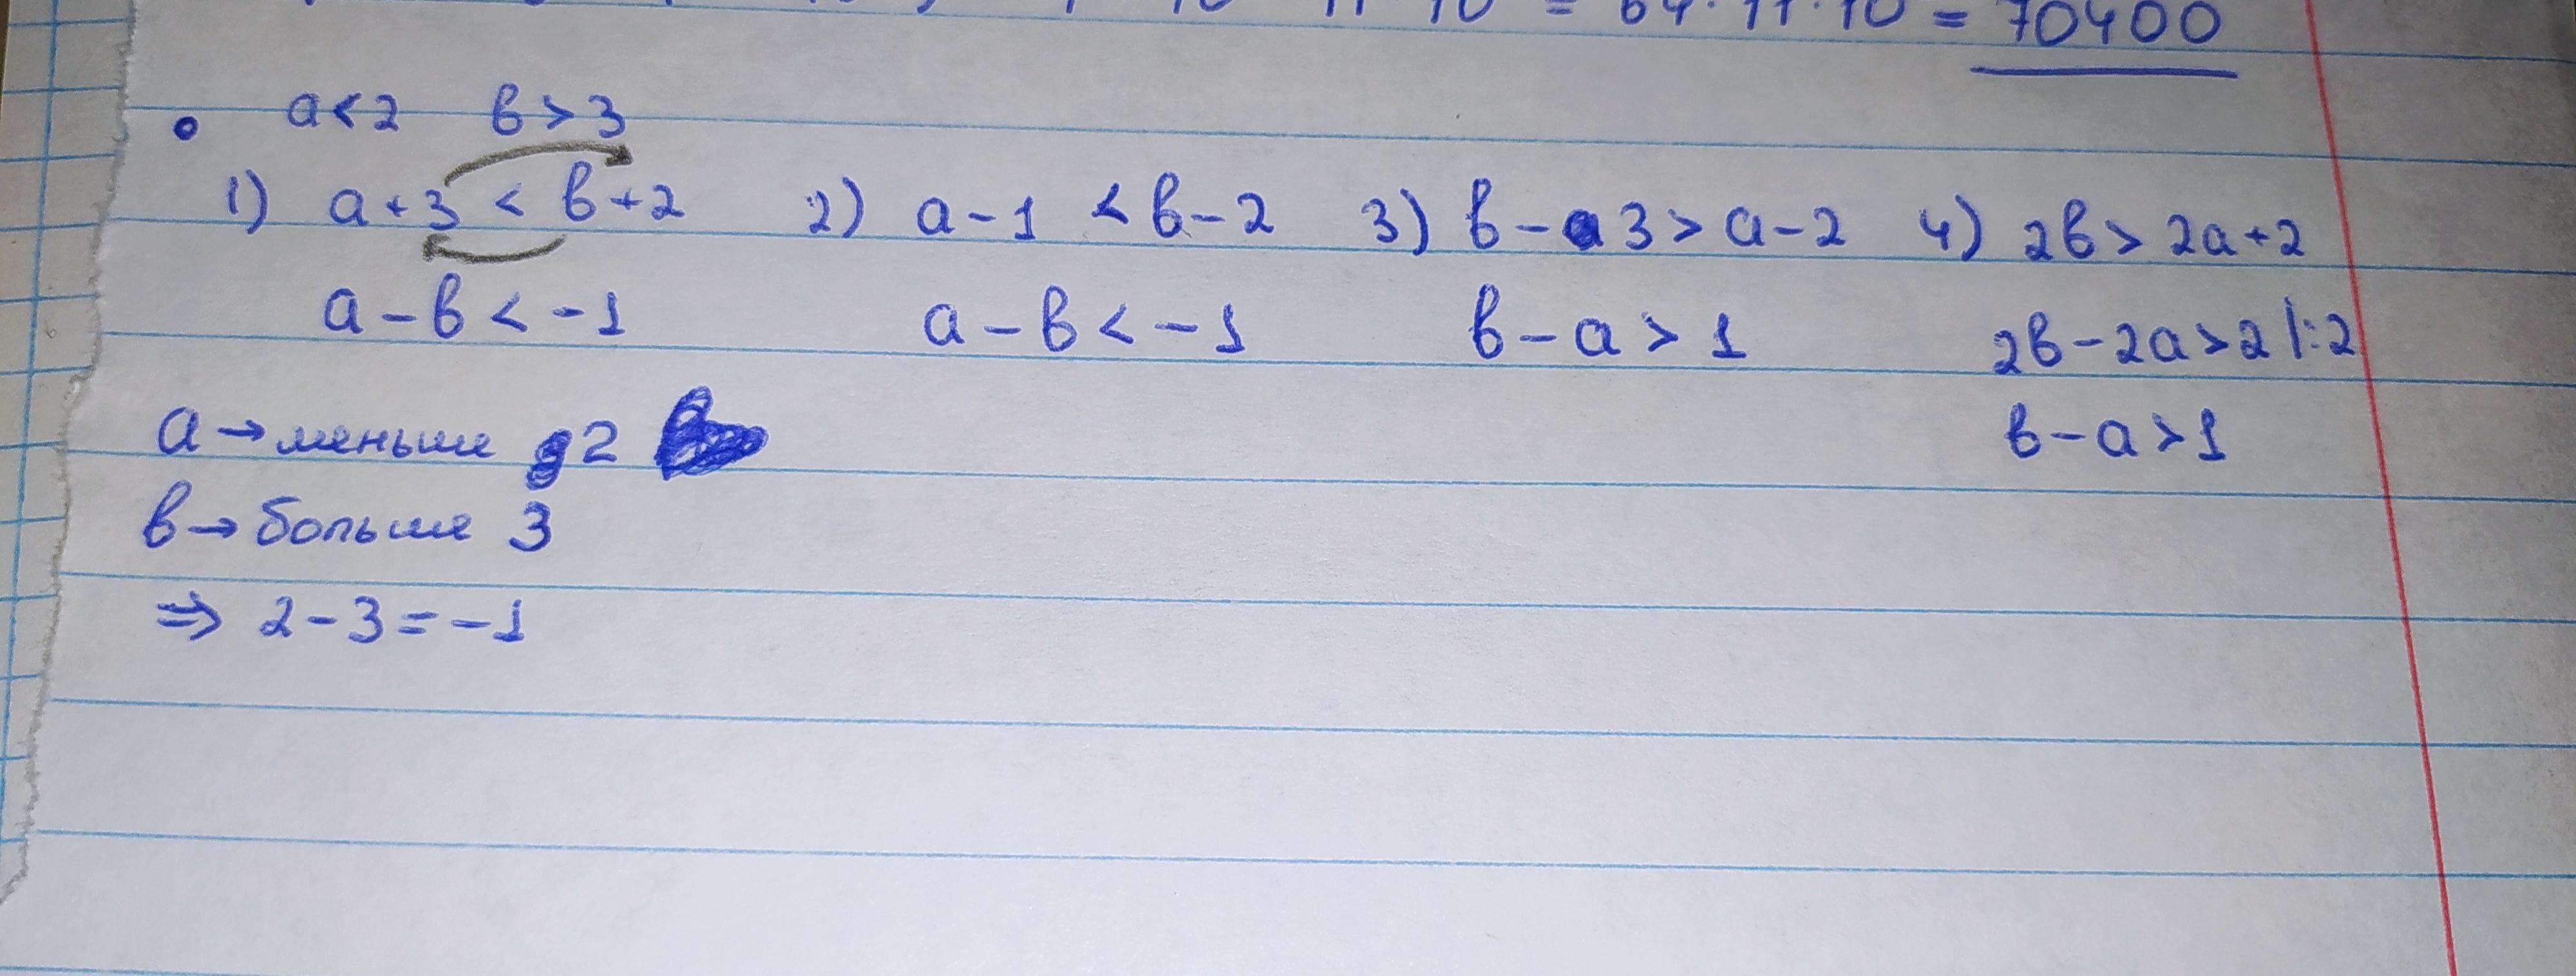 = 64·11·10 = 70400
a<2 в>3
1) a+3 < в+2 2) a-1 < в-2 3) в-3 > a-2 4) 2в > 2a+2
a-в < -1 a-в < -1 в-a > 1 2в-2a>2 |:2
в-a>1
a → меньше 2
в → больше 3
⇒ 2-3=-1